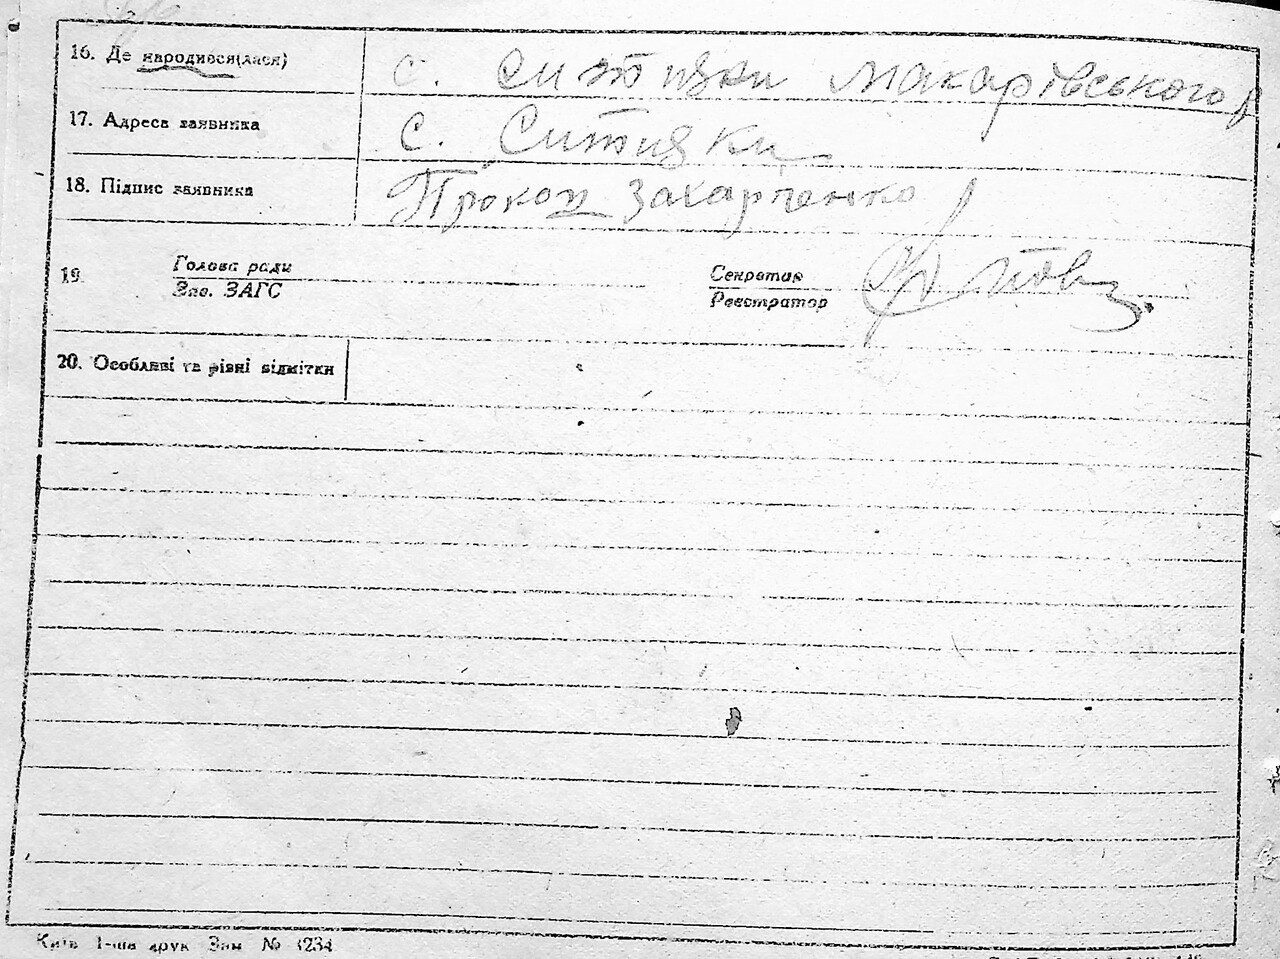 16. Де народився(лася) с. Ситняки Макарівського р
17. Адреса заявника с. Ситняки
18. Підпис заявника Прокоп Захарченко
19. Голова ради Секретар
Зав. ЗАГС Реєстратор
20. Особливі та різні відмітки
Київ 1-ша друк Зам № 3234